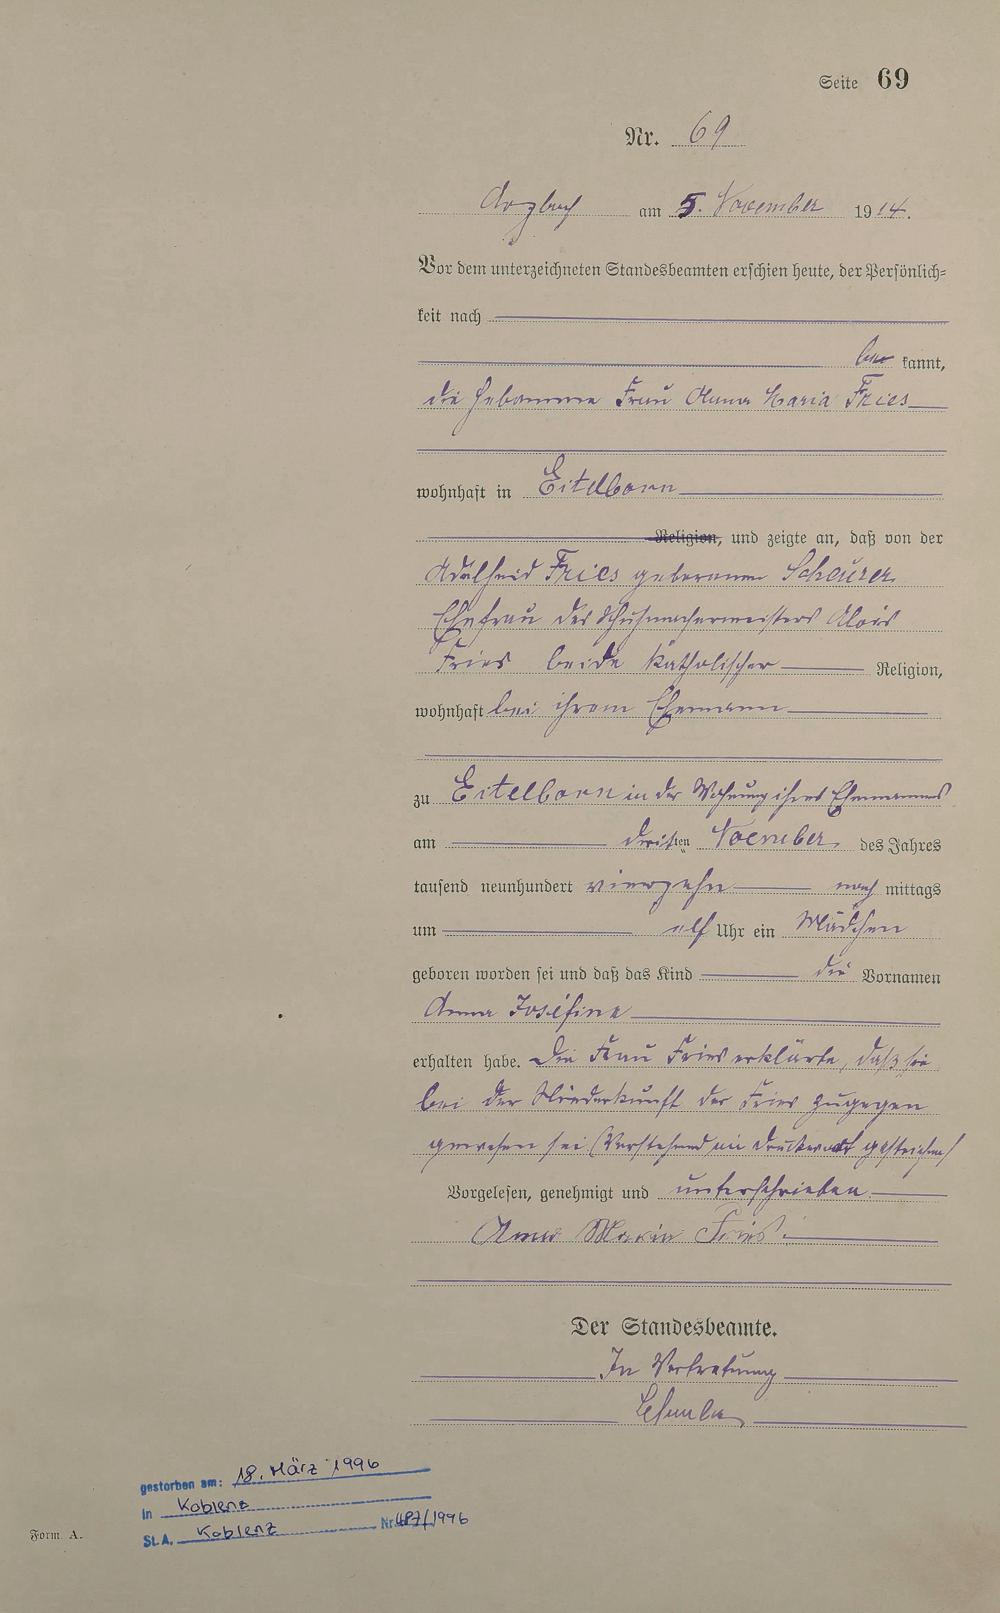 Seite 69
Nr. 69
Arzbach am 5. November 1914.
Vor dem unterzeichneten Standesbeamten erschien heute, der Persönlich=
keit nach
be kannt,
die Hebamme Frau Anna Maria Fries
wohnhaft in Eitelborn
Religion, und zeigte an, daß von der
Adelheid Fries geborenen Scheurer
Ehefrau des Schuhmachermeisters Alois
Fries beide katholischer Religion,
wohnhaft bei ihrem Ehemann
zu Eitelborn in der Wohnung ihres Ehemannes
am dritten November des Jahres
tausend neunhundert vierzehn nach mittags
um elf Uhr ein Mädchen
geboren worden sei und daß das Kind die Vornamen
Anna Josefine
erhalten habe. Die Frau Fries erklärte, daß sie
bei der Niederkunft der Fries zugegen
gewesen sei (Vorstehend ein Druckwort gestrichen)
Vorgelesen, genehmigt und unterschrieben
Anna Maria Fries.
Der Standesbeamte.
In Vertretung
gestorben am: 18. März 1996
in Koblenz
St.A. Koblenz Nr. 487/1996
Form A.